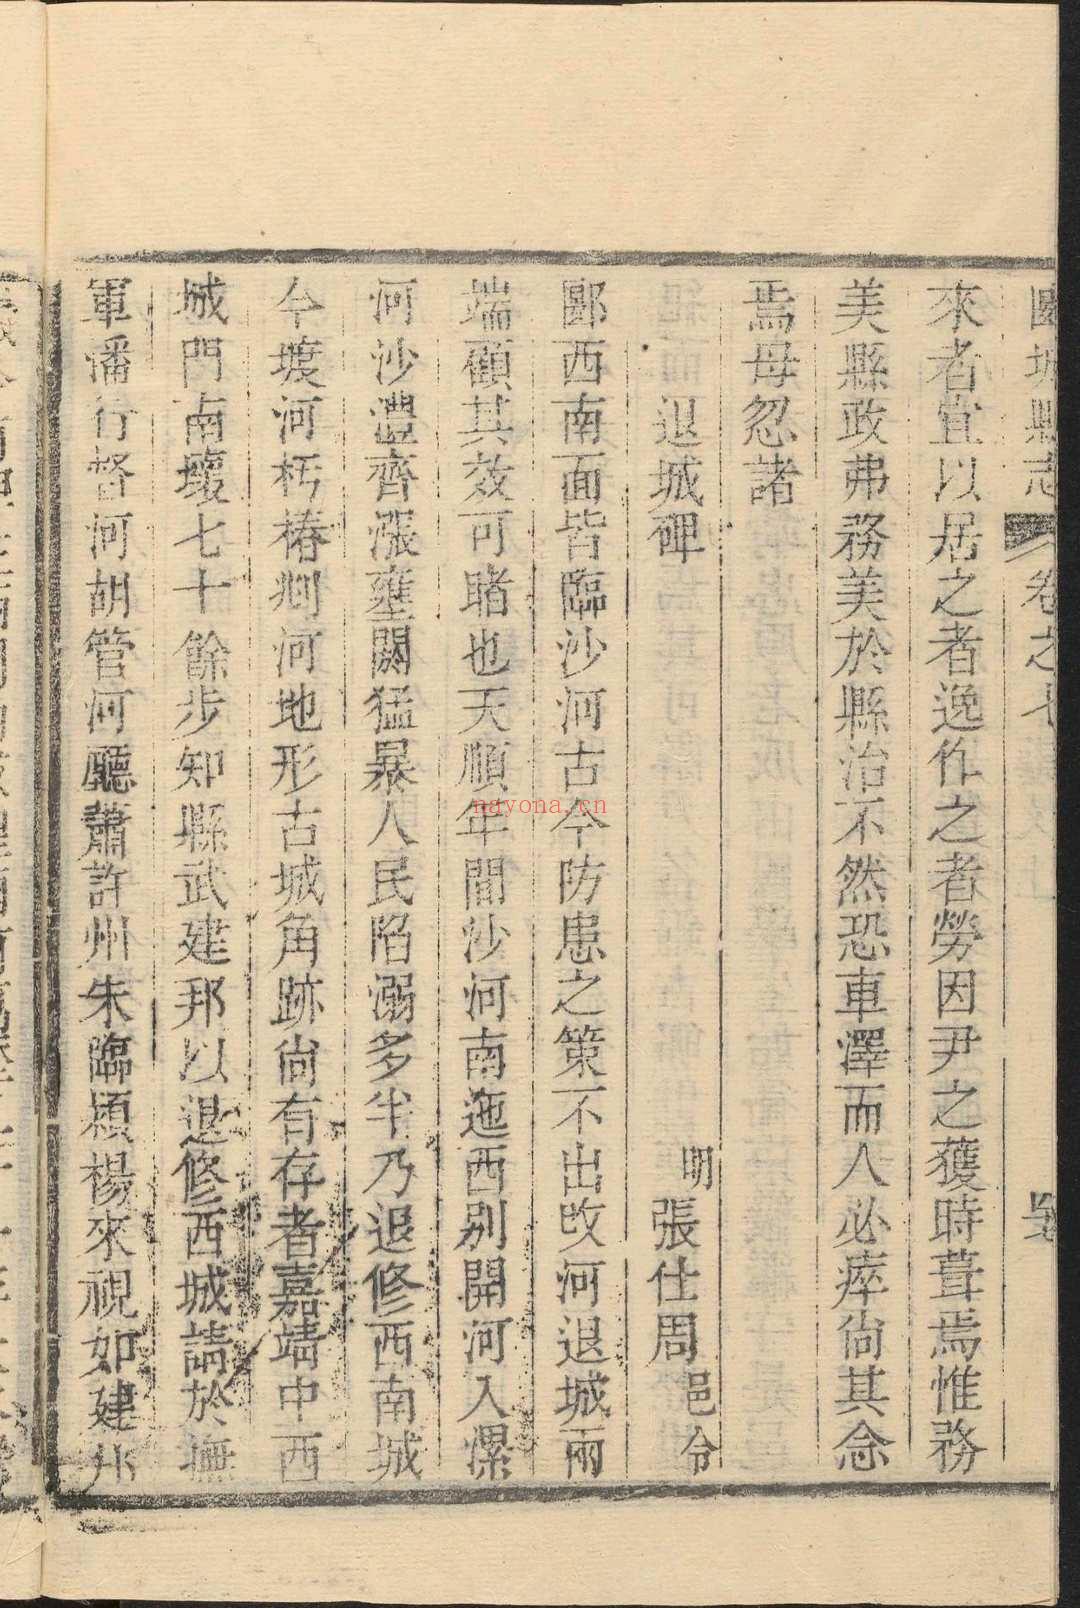 郾城縣志 卷之七
來者宜以居之者逸作之者勞因尹之獲時葺焉惟務
美縣政弗務美於縣治不然恐車澤而人必瘁尚其念
焉毋忽諸
退城碑 明張仕周邑令
郾西南面皆臨沙河古今防患之策不出改河退城兩
端顧其效可睹也天順年間沙河南迤西別開河入漯
河沙澧齊漲壅閼猛暴人民陷溺多半乃退修西南城
今壕河朽樁刱河地形古城角跡尚有存者嘉靖中西
城門南壞七十餘步知縣武建邦以退修西城請於撫
軍潘行督河胡管河廳蕭許州朱臨潁楊來視如建邦
nayona.cn